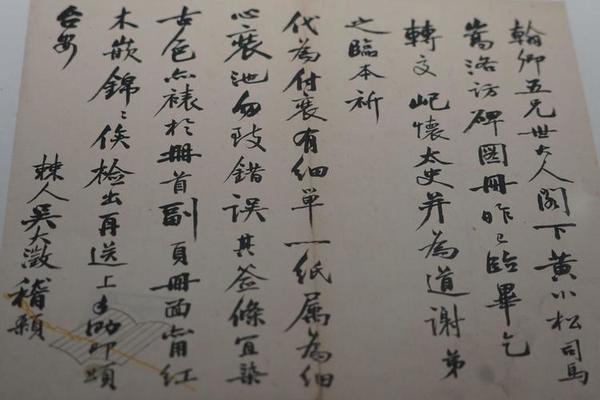 翰卿五兄世大人閣下黃小松司馬
嵩洛訪碑圖冊昨已臨畢乞
轉交 屺懷太史并為道謝弟
之臨本祈
代為付裝有細單一紙屬為細
心裝池勿致錯誤其簽條宜染
古色亦裱於冊首副頁冊面用紅
木嵌錦錦俟檢出再送上手此叩頌
台安
棘人吳大澂稽顙